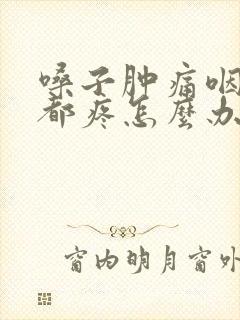 嗓子肿痛咽
都疼怎麼办
窗内明月窗外